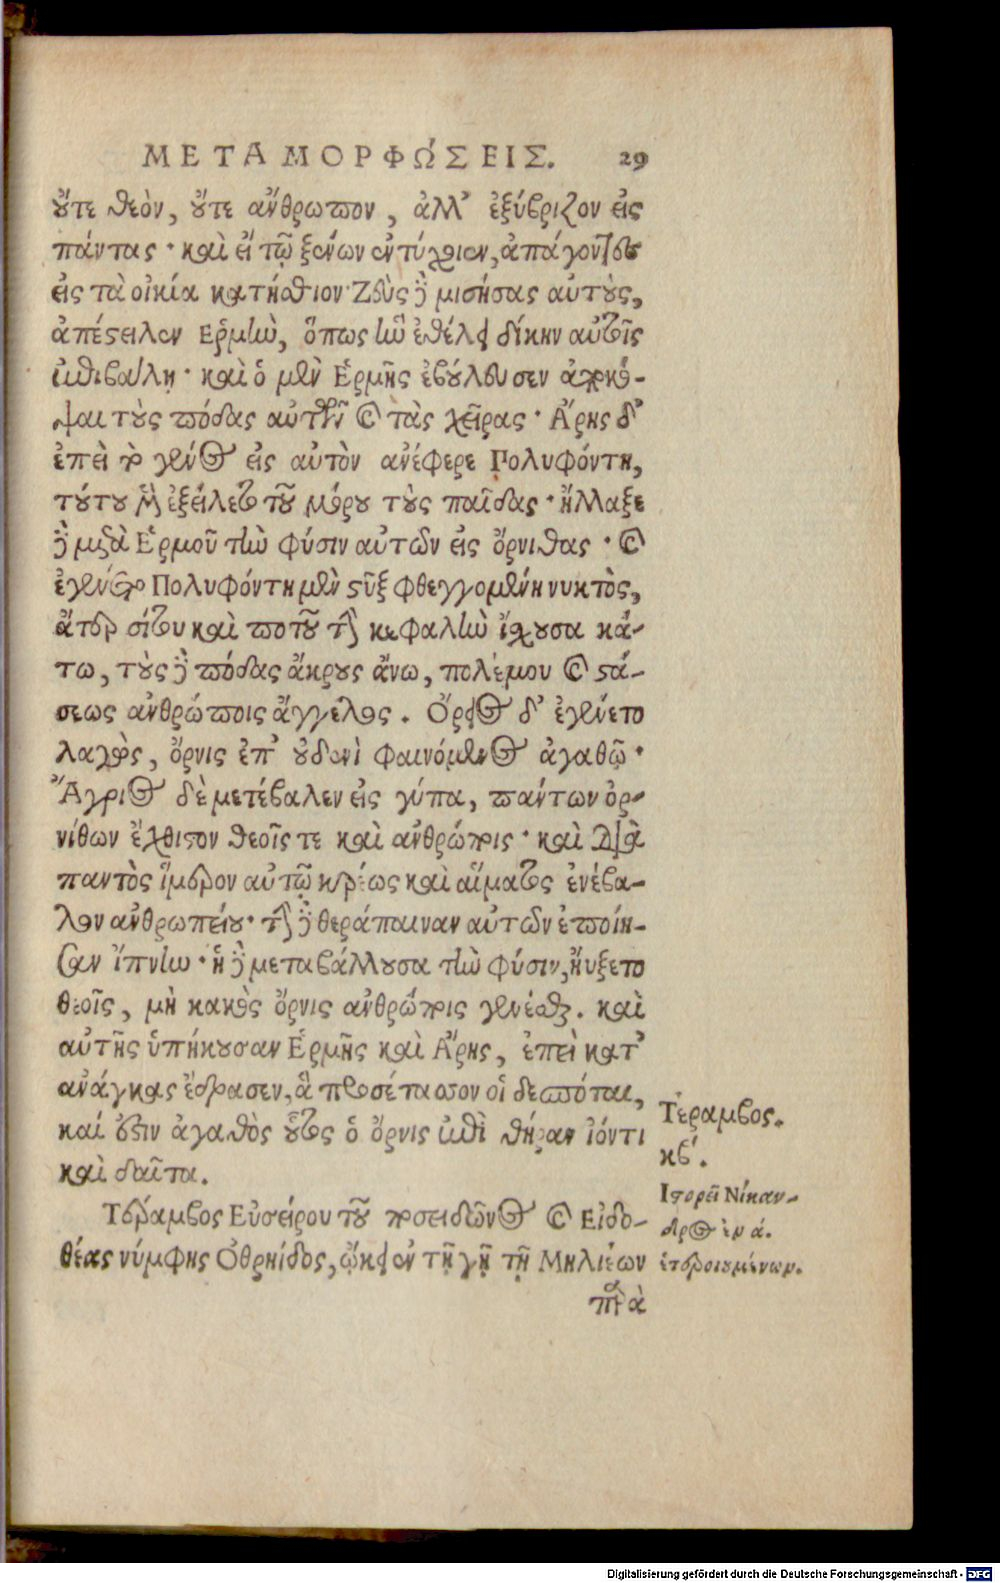 ΜΕΤΑΜΟΡΦΩ´ΣΕΙΣ. 29
οὔτε θεὸν, οὔτε ἄνθρωπον, ἀλλ' ἐξύβριζον εἰς
πάντας· καὶ εἴ τῳ ξένων ἐντύχοιεν, ἀπάγοντες
εἰς τὰ οἰκία κατήσθιον· Ζεὺς δὲ μισήσας αὐτοὺς,
ἀπέστειλεν Ερμὴν, ὅπως ἣν ἐθέλοι δίκην αὐτοῖς
ἐπιβάλῃ· καὶ ὁ μὲν Ἑρμῆς ἐβούλευσεν ἀποκό-
ψαι τοὺς πόδας αὐτῶν καὶ τὰς χεῖρας· Ἄρης δ'
ἐπεὶ τὸ γένος εἰς αὐτὸν ἀνέφερε Πολυφόντη,
τούτου μὲν ἐξείλετο τοῦ μόρου τοὺς παῖδας· ἤλλαξε
δὲ μετὰ Ἑρμοῦ τὴν φύσιν αὐτῶν εἰς ὄρνιθας· καὶ
ἐγένετο Πολυφόντη μὲν στὺξ φθεγγομένη νυκτὸς,
ἄτερ σίτου καὶ ποτοῦ τὴν κεφαλὴν ἴσχουσα κά-
τω, τοὺς δὲ πόδας ἄκρους ἄνω, πολέμου καὶ στά-
σεως ἀνθρώποις ἄγγελος. Ὄρειος δ' ἐγένετο
λαγὼς, ὄρνις ἐπ' οὐδενὶ φαινόμενος ἀγαθῷ·
Ἄγριος δὲ μετέβαλεν εἰς γύπα, πάντων ὀρ-
νίθων ἔχθιστον θεοῖς τε καὶ ἀνθρώποις· καὶ διὰ
παντὸς ἵμερον αὐτῷ κρέως καὶ αἵματος ἐνέβα-
λον ἀνθρωπείου· τὴν δὲ θεράπαιναν αὐτῶν ἐποίη-
σαν ἴπνην· ἡ δὲ μεταβάλλουσα τὴν φύσιν, ἤυξετο
θεοῖς, μὴ κακὸς ὄρνις ἀνθρώποις γενέσθαι. καὶ
αὐτῆς ὑπήκουσαν Ἑρμῆς καὶ Ἄρης, ἐπεὶ κατ'
ἀνάγκας ἔδρασεν, ἃ προσέτασσον οἱ δεσπόται,
καί ἐστιν ἀγαθὸς οὗτος ὁ ὄρνις ἐπὶ θήραν ἰόντι
καὶ δαῖτα.
Τέραμβος.
κβ´.
Ιστορεῖ Νίκαν-
δρος ἐν ά.
ἑτεροιουμένων.
Τέραμβος Εὐσείρου τοῦ ποσειδῶνος καὶ Εἰδο-
θέας νύμφης Ὀθρηίδος, ᾤκει ἐν τῇ γῇ τῇ Μηλιέων
παρὰ
Digitalisierung gefördert durch die Deutsche Forschungsgemeinschaft - DFG